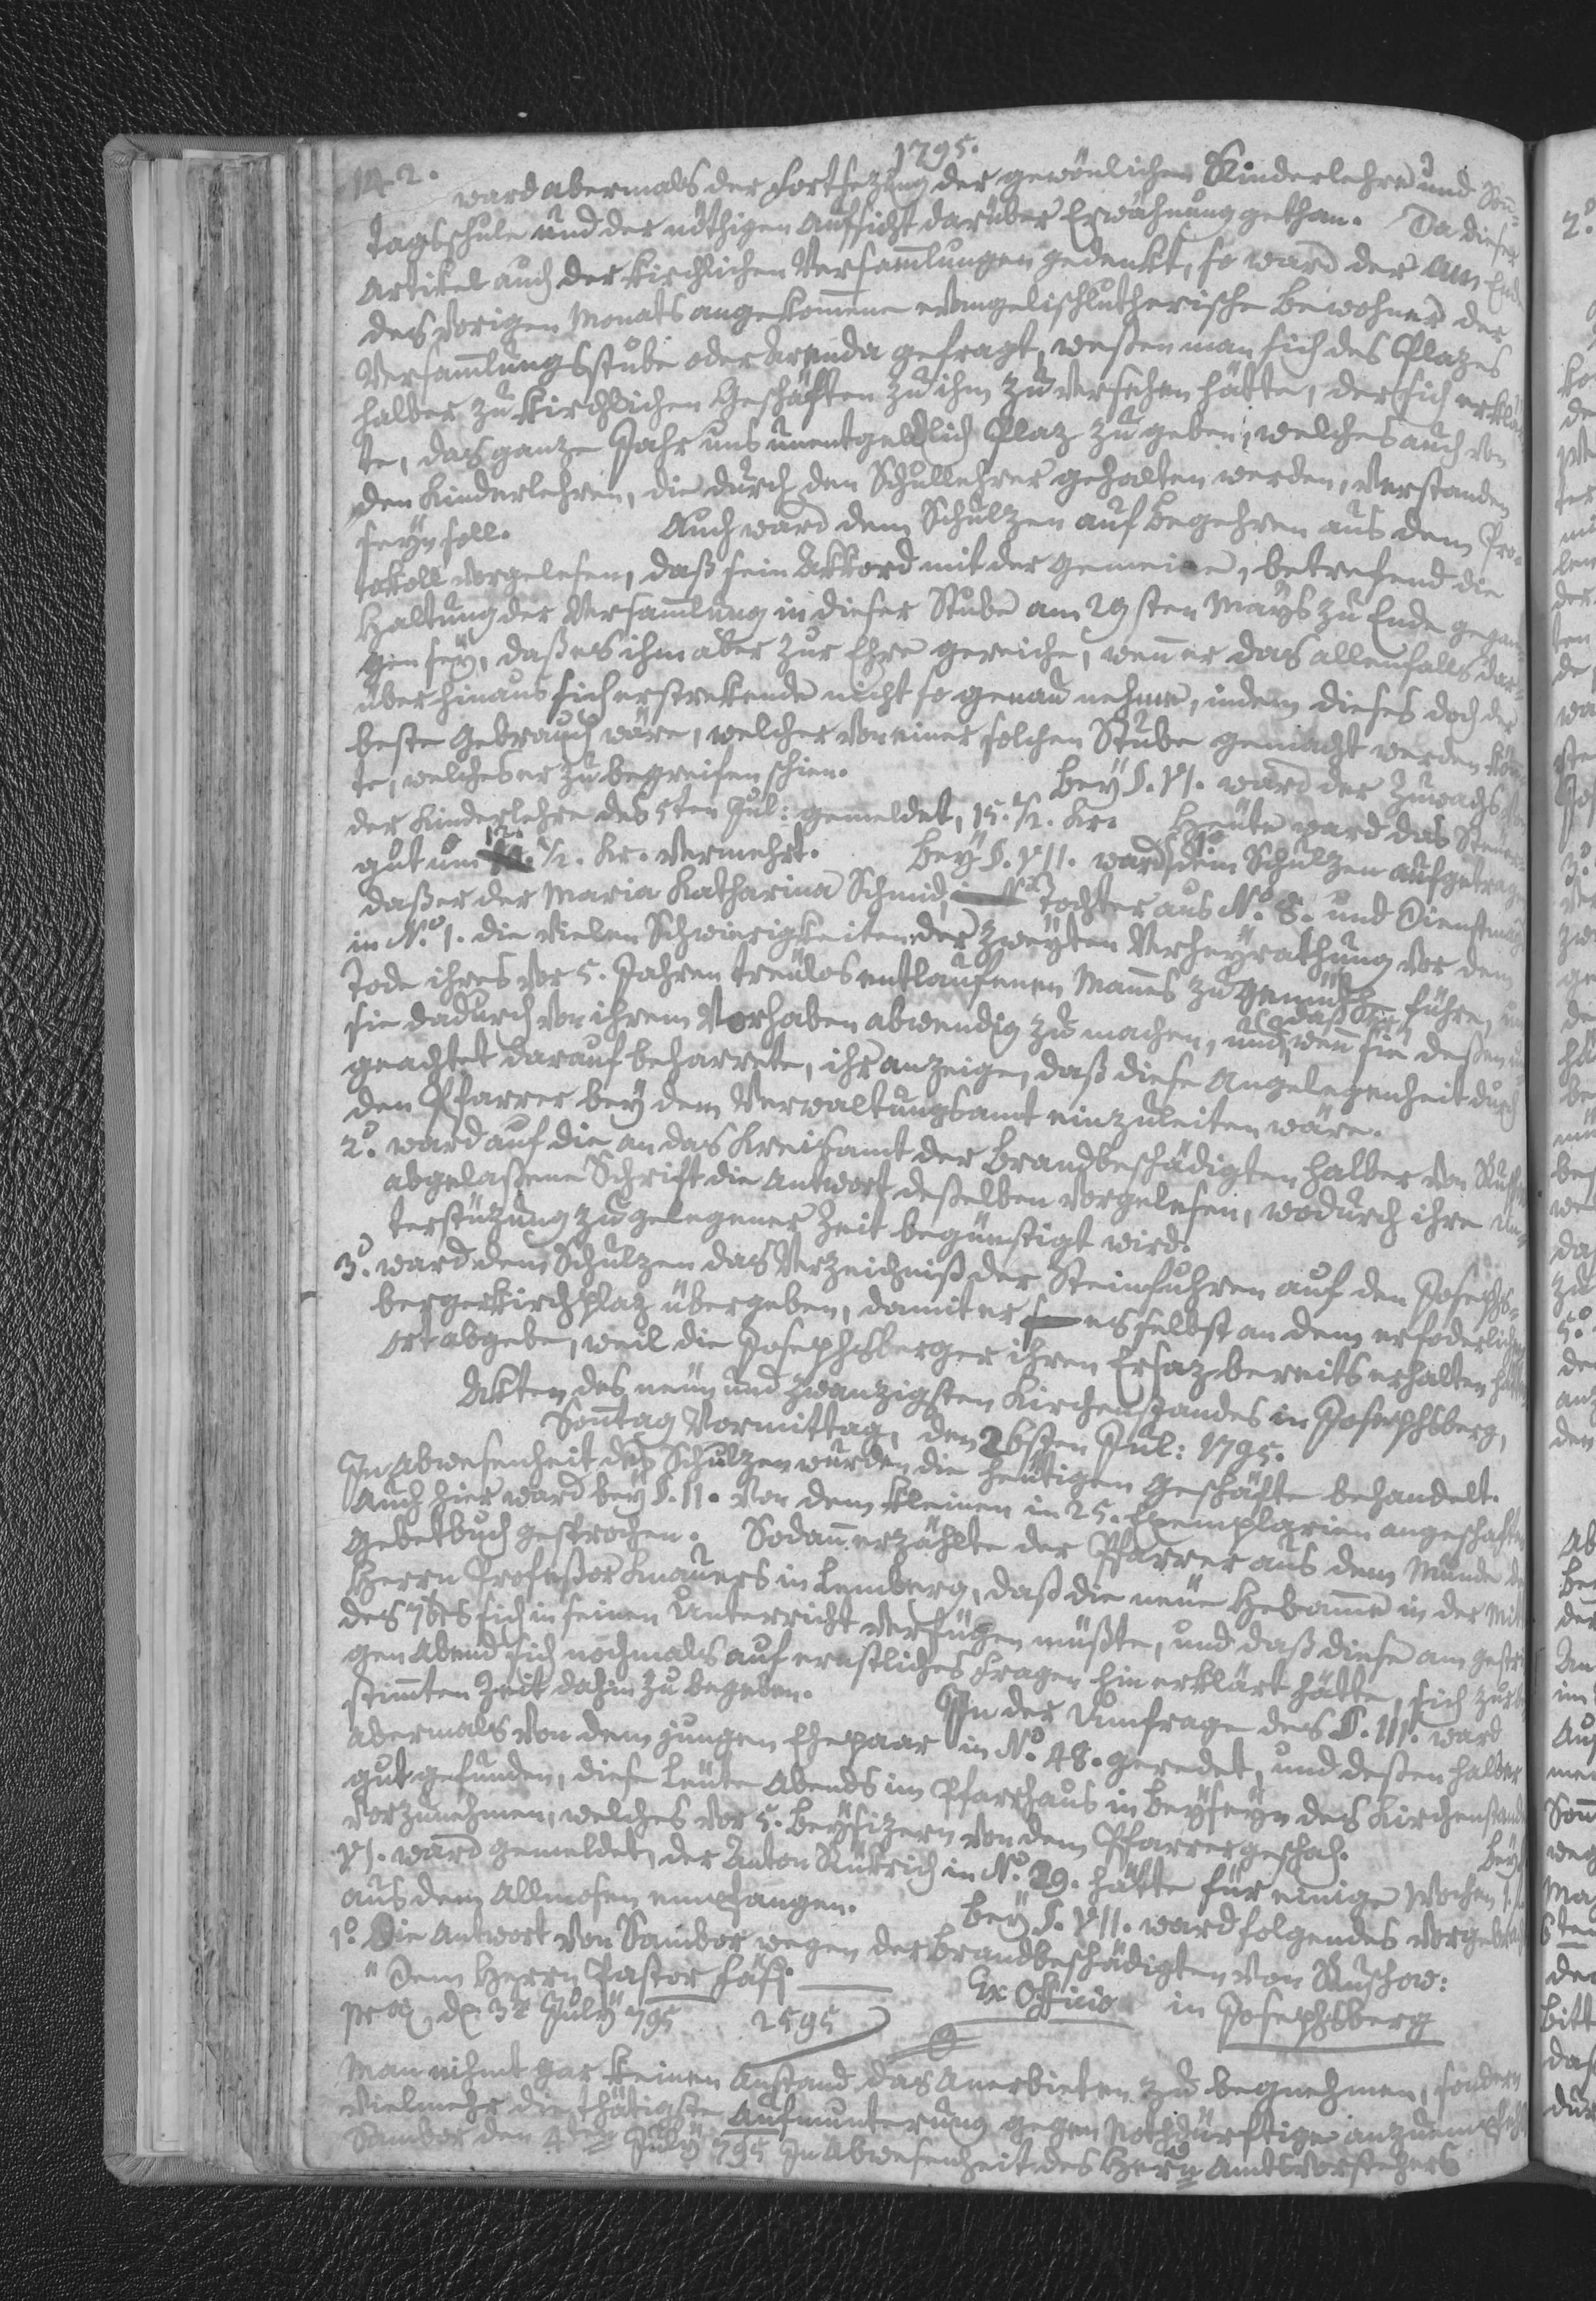 142.
1795.
ward abermals der Fortsezung der gewönlichen Kinderlehre und Son-
tagsschule und der nöthigen Aufsicht darüber Erwähnung gethan. Da dieser
Artikel auch der kirchlichen Versamlungen gedenkt, so ward der am Ende
des vorigen Monats angekomene evangelischlutherische Bewohner der
Versamlungsstube oder Arenda gefragt, weßen man sich des Plazes
halber zu kirchlichen Geschäften zu ihm zu versehen hätte, der sich erklär-
te, das ganze Jahr uns unentgeldlich Plaz zu geben, welches auch von
den Kinderlehren, die durch den Schullehrer gehalten werden, verstanden
seyn soll. Auch ward dem Schulzen auf Begehren aus dem Pro-
tokoll vorgelesen, daß sein Akkord mit der Gemeine, betrefend die
Haltung der Versamlung in dieser Stube am 29sten Mays zu Ende gegan-
gen sey, daß es ihm aber zur Ehre gereiche, wen er das allenfalls dar-
über hinaus sich erstrekende nicht so genau nehme, indem dieses doch der
beste Gebrauch wäre, welcher von einer solchen Stube gemacht werden kön-
te, welches er zu begreifen schien. Bey §. VI. ward der Zuwachs von
der Kinderlehre des 5ten Jul: gemeldet, 15. 1/2. Kr. Heute ward das Steuer-
gut um 12. 1/2. Kr. vermehrt. Bey §. VII. ward 1o dem Schulzen aufgetragen
daß er der Maria Katharina Schmid, Tochter aus No. 8. und Dienstmagd
in No. 1. die vielen Schwierigkeiten der zweyten Verheyrathung vor dem
Tode ihres vor 5. Jahren treulos entlaufenen Manes zu Gemüth führe, um
sie dadurch von ihrem Vorhaben abwendig zu machen, und daß er, wen sie deßen un-
geachtet darauf beharrete, ihr anzeige, daß diese Angelegenheit durch
den Pfarrer bey dem Verwaltungsamt einzuleiten wäre.
2o. ward auf die an das Kreisamt der Brandbeschädigten halber von
abgelaßene Schrift die Antwort deßelben vorgelesen, wodurch ihre Un-
terstüzung zu gelegener Zeit begünstigt wird.
3o. ward dem Schulzen das Verzeichniß der Steinfuhren auf den Josephs-
bergerkirchplaz übergeben, damit er es selbst an dem erfoderlichen
Ort abgebe, weil die Josephsberger ihren Ersaz bereits erhalten hätten
Akten des neun und zwanzigsten Kirchenstandes in Josephsberg,
Sontag Vormittag, den 26sten Jul: 1795.
In Abwesenheit des Schulzen wurden die heutigen Geschäfte behandelt.
Auch hier ward bey §. II. von dem kleinen in 25. Exemplarien angeschaften
Gebetbuch gesprochen. Sodan erzählte der Pfarrer aus dem Munde des
Herrn Profeßor Knauers in Lemberg, daß die neue Hebame in der Mitte
des 7bers sich in seinen Unterricht verfügen müßte, und daß diese am gestri-
gen Abend sich nochmals auf ernstliches Fragen hin erklärt hätte, sich zur be-
stimten Zeit dahin zu begeben. In der Umfrage des §. III. ward
abermals von dem jungen Ehepaar in No. 48. geredet, und deßen halber
gut gefunden, diese Leute Abends im Pfarrhaus in Beyseyn des Kirchenstandes
vorzunehmen, welches vor 5. Beysizern von dem Pfarrer geschah. Bey
VI. ward gemeldet, der Anton Rükrich in No. 29. hätte für einige Wochen
aus dem Allmosen empfangen. Bey §. VII. ward folgendes vorgebracht
1o. Die Antwort von Sambor wegen der Brandbeschädigten von Ruschow:
" Dem Herrn Pastor Fäß. Ex Officio in Josephsberg
d. 3t July 795 2595
Man nihmt gar keinen Anstand das Anerbieten zu begnehmen, sondern
vielmehr die thätigste Aufmunterung gegen Nothdürftige anzuempfehlen
Sambor den 4ten July 795 In Abwesenheit des Herrn Amtsvorstehers